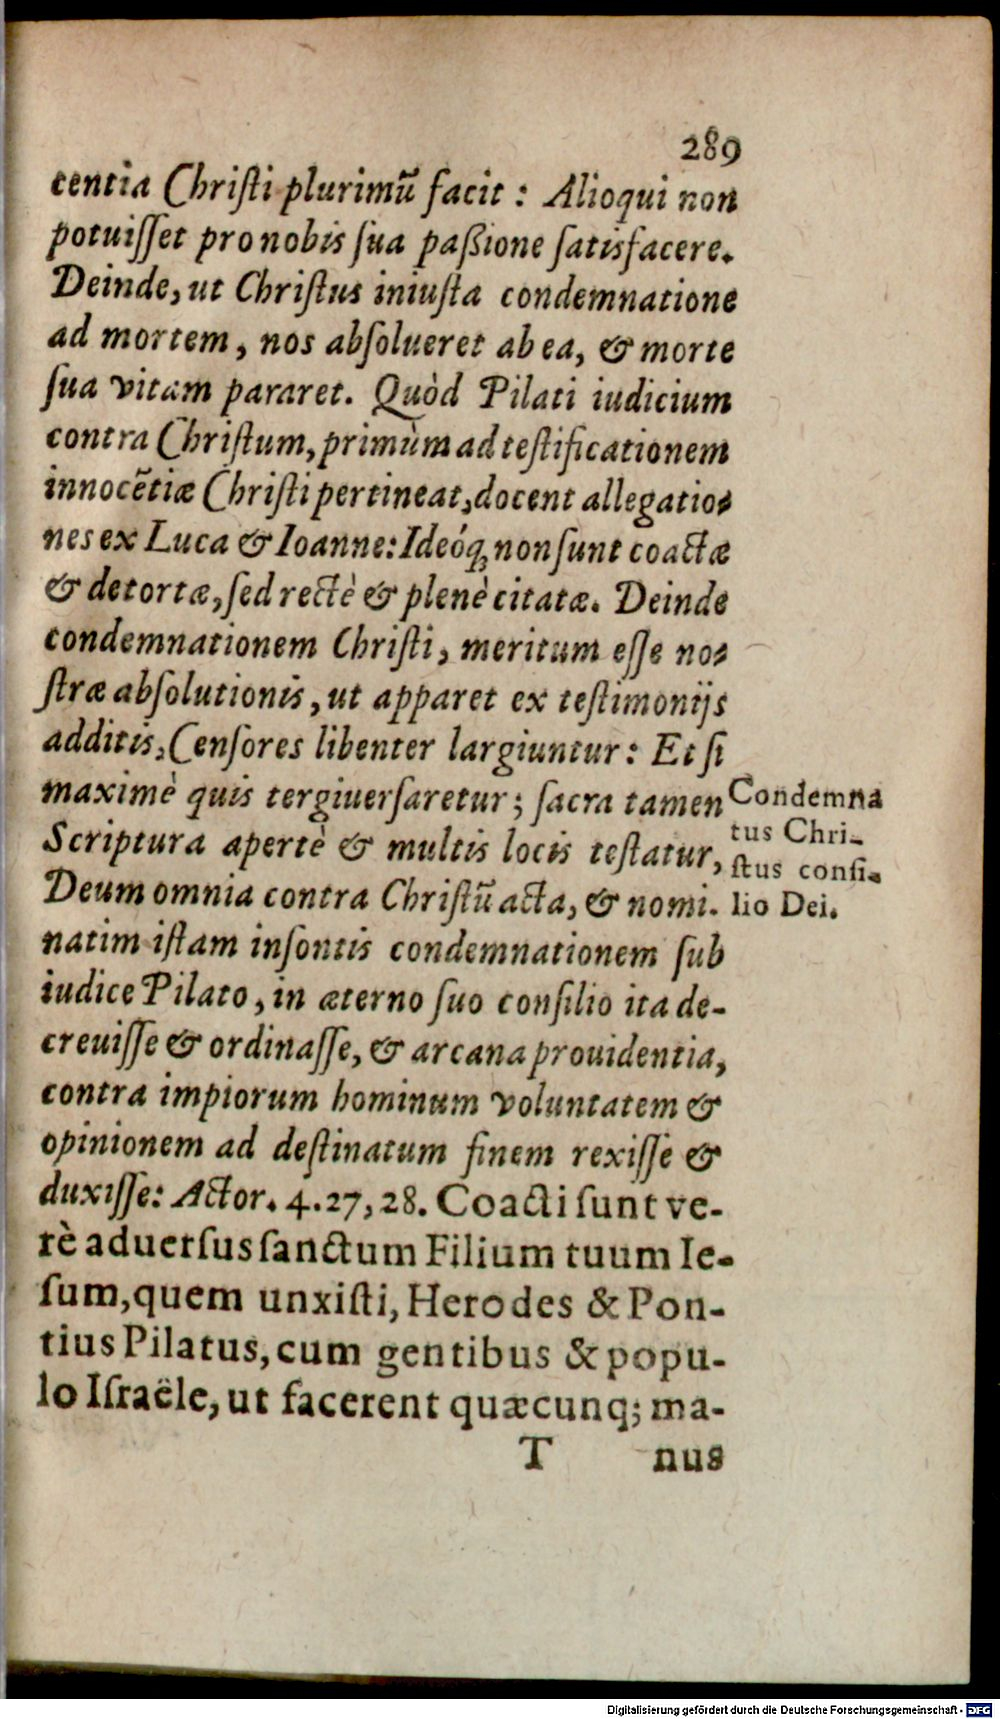 289
centia Chriſti plurimũ facit : Alioqui non
potuiſſet pro nobis ſua paßione ſatisfacere.
Deinde, ut Chriſtus iniuſta condemnatione
ad mortem, nos abſolueret ab ea, & morte
ſua vitam pararet. Quòd Pilati iudicium
contra Chriſtum, primùm ad teſtificationem
innocẽtiæ Chriſti pertineat, docent allegatio-
nes ex Luca & Ioanne: Ideóq; non ſunt coactæ
& detortæ, ſed rectè & plenè citatæ. Deinde
condemnationem Chriſti, meritum eſſe no-
ſtræ abſolutionis, ut apparet ex teſtimonijs
additis, Cenſores libenter largiuntur: Et ſi
maximè quis tergiuerſaretur; ſacra tamen
Scriptura apertè & multis locis teſtatur,
Deum omnia contra Chriſtũ acta, & nomi-
natim iſtam inſontis condemnationem ſub
iudice Pilato, in æterno ſuo conſilio ita de-
creuiſſe & ordinaſſe, & arcana prouidentia,
contra impiorum hominum voluntatem &
opinionem ad deſtinatum finem rexiſſe &
duxiſſe: Actor. 4.27, 28. Coacti ſunt ve-
rè aduerſus ſanctum Filium tuum Ie-
ſum, quem unxiſti, Herodes & Pon-
tius Pilatus, cum gentibus & popu-
lo Iſraële, ut facerent quæcunq; ma-
T nus
Condemna
tus Chri-
ſtus conſi-
lio Dei.
Digitalisierung gefördert durch die Deutsche Forschungsgemeinschaft - DFG